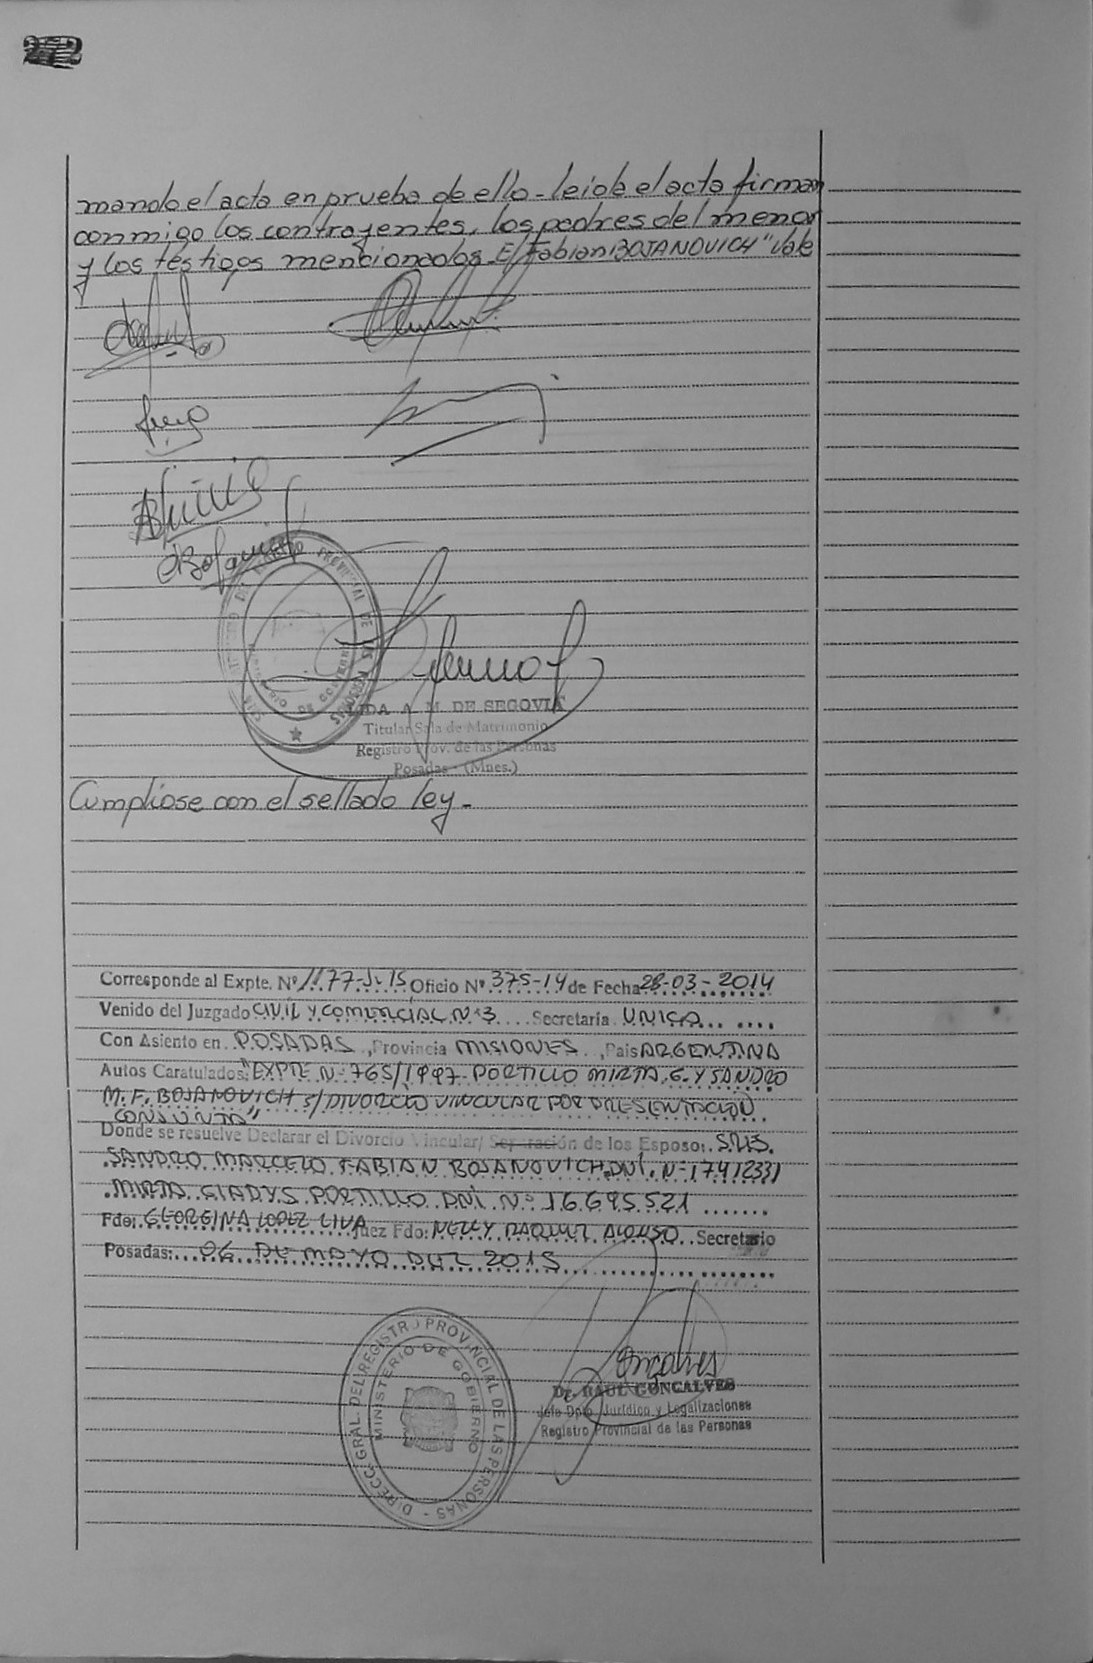 272
mando el acta en prueba de ello - leida el acta firman
conmigo los contrayentes, los padres del menor
y los testigos mencionados. E/ Fabian BOJANOVICH "Vale
REGISTRO PROVINCIAL DE LAS PERSONAS
MINISTERIO DE GOBIERNO
A. M. DE SEGOVIA
Titular Sala de Matrimonio
Registro Prov. de las Personas
Posadas - (Mnes.)
Cumpliose con el sellado ley -
Corresponde al Expte. Nº 1177-J-15 Oficio Nº 375-14 de Fecha 28-03-2014
Venido del Juzgado CIVIL Y COMERCIAL Nº 3 Secretaría UNICA
Con Asiento en POSADAS, Provincia MISIONES, País ARGENTINA
Autos Caratulados: "EXPTE Nº 765/1997 PORTILLO MIRTA G. Y SANDRO
M. F. BOJANOVICH s/ DIVORCIO VINCULAR POR PRESENTACION
CONJUNTA"
Donde se resuelve Declarar el Divorcio Vincular/ Separación de los Esposo: SRES.
SANDRO MARCELO FABIAN BOJANOVICH DNI. Nº 17412331
MIRTA GLADYS PORTILLO DNI Nº 16.695.521
Fdo: GEORGINA LOPEZ LIVA Juez Fdo: NELLY RAQUEL ALONSO Secretario
Posadas: 06 DE MAYO DEL 2015
DIRECC. GRAL. DEL REGISTRO PROVINCIAL DE LAS PERSONAS
MINISTERIO DE GOBIERNO
Goncalves
Dr. RAUL GONCALVES
Jefe Dpto. Jurídico y Legalizaciones
Registro Provincial de las Personas